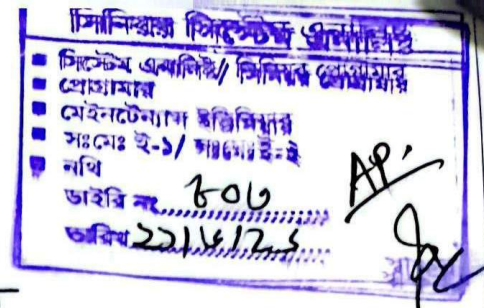 সিনিয়র সিস্টেম এনালিস্ট
■ সিস্টেম এনালিস্ট/ সিনিয়র প্রোগ্রামার
■ প্রোগ্রামার
■ মেইনটেন্যান্স ইঞ্জিনিয়ার
■ সঃমেঃ ই-১/ সঃমেঃ ই-২
■ নথি
AP.
ডাইরি নং
তারিখ